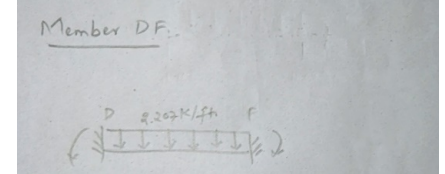 Member DF:
D 2.207K/ft F